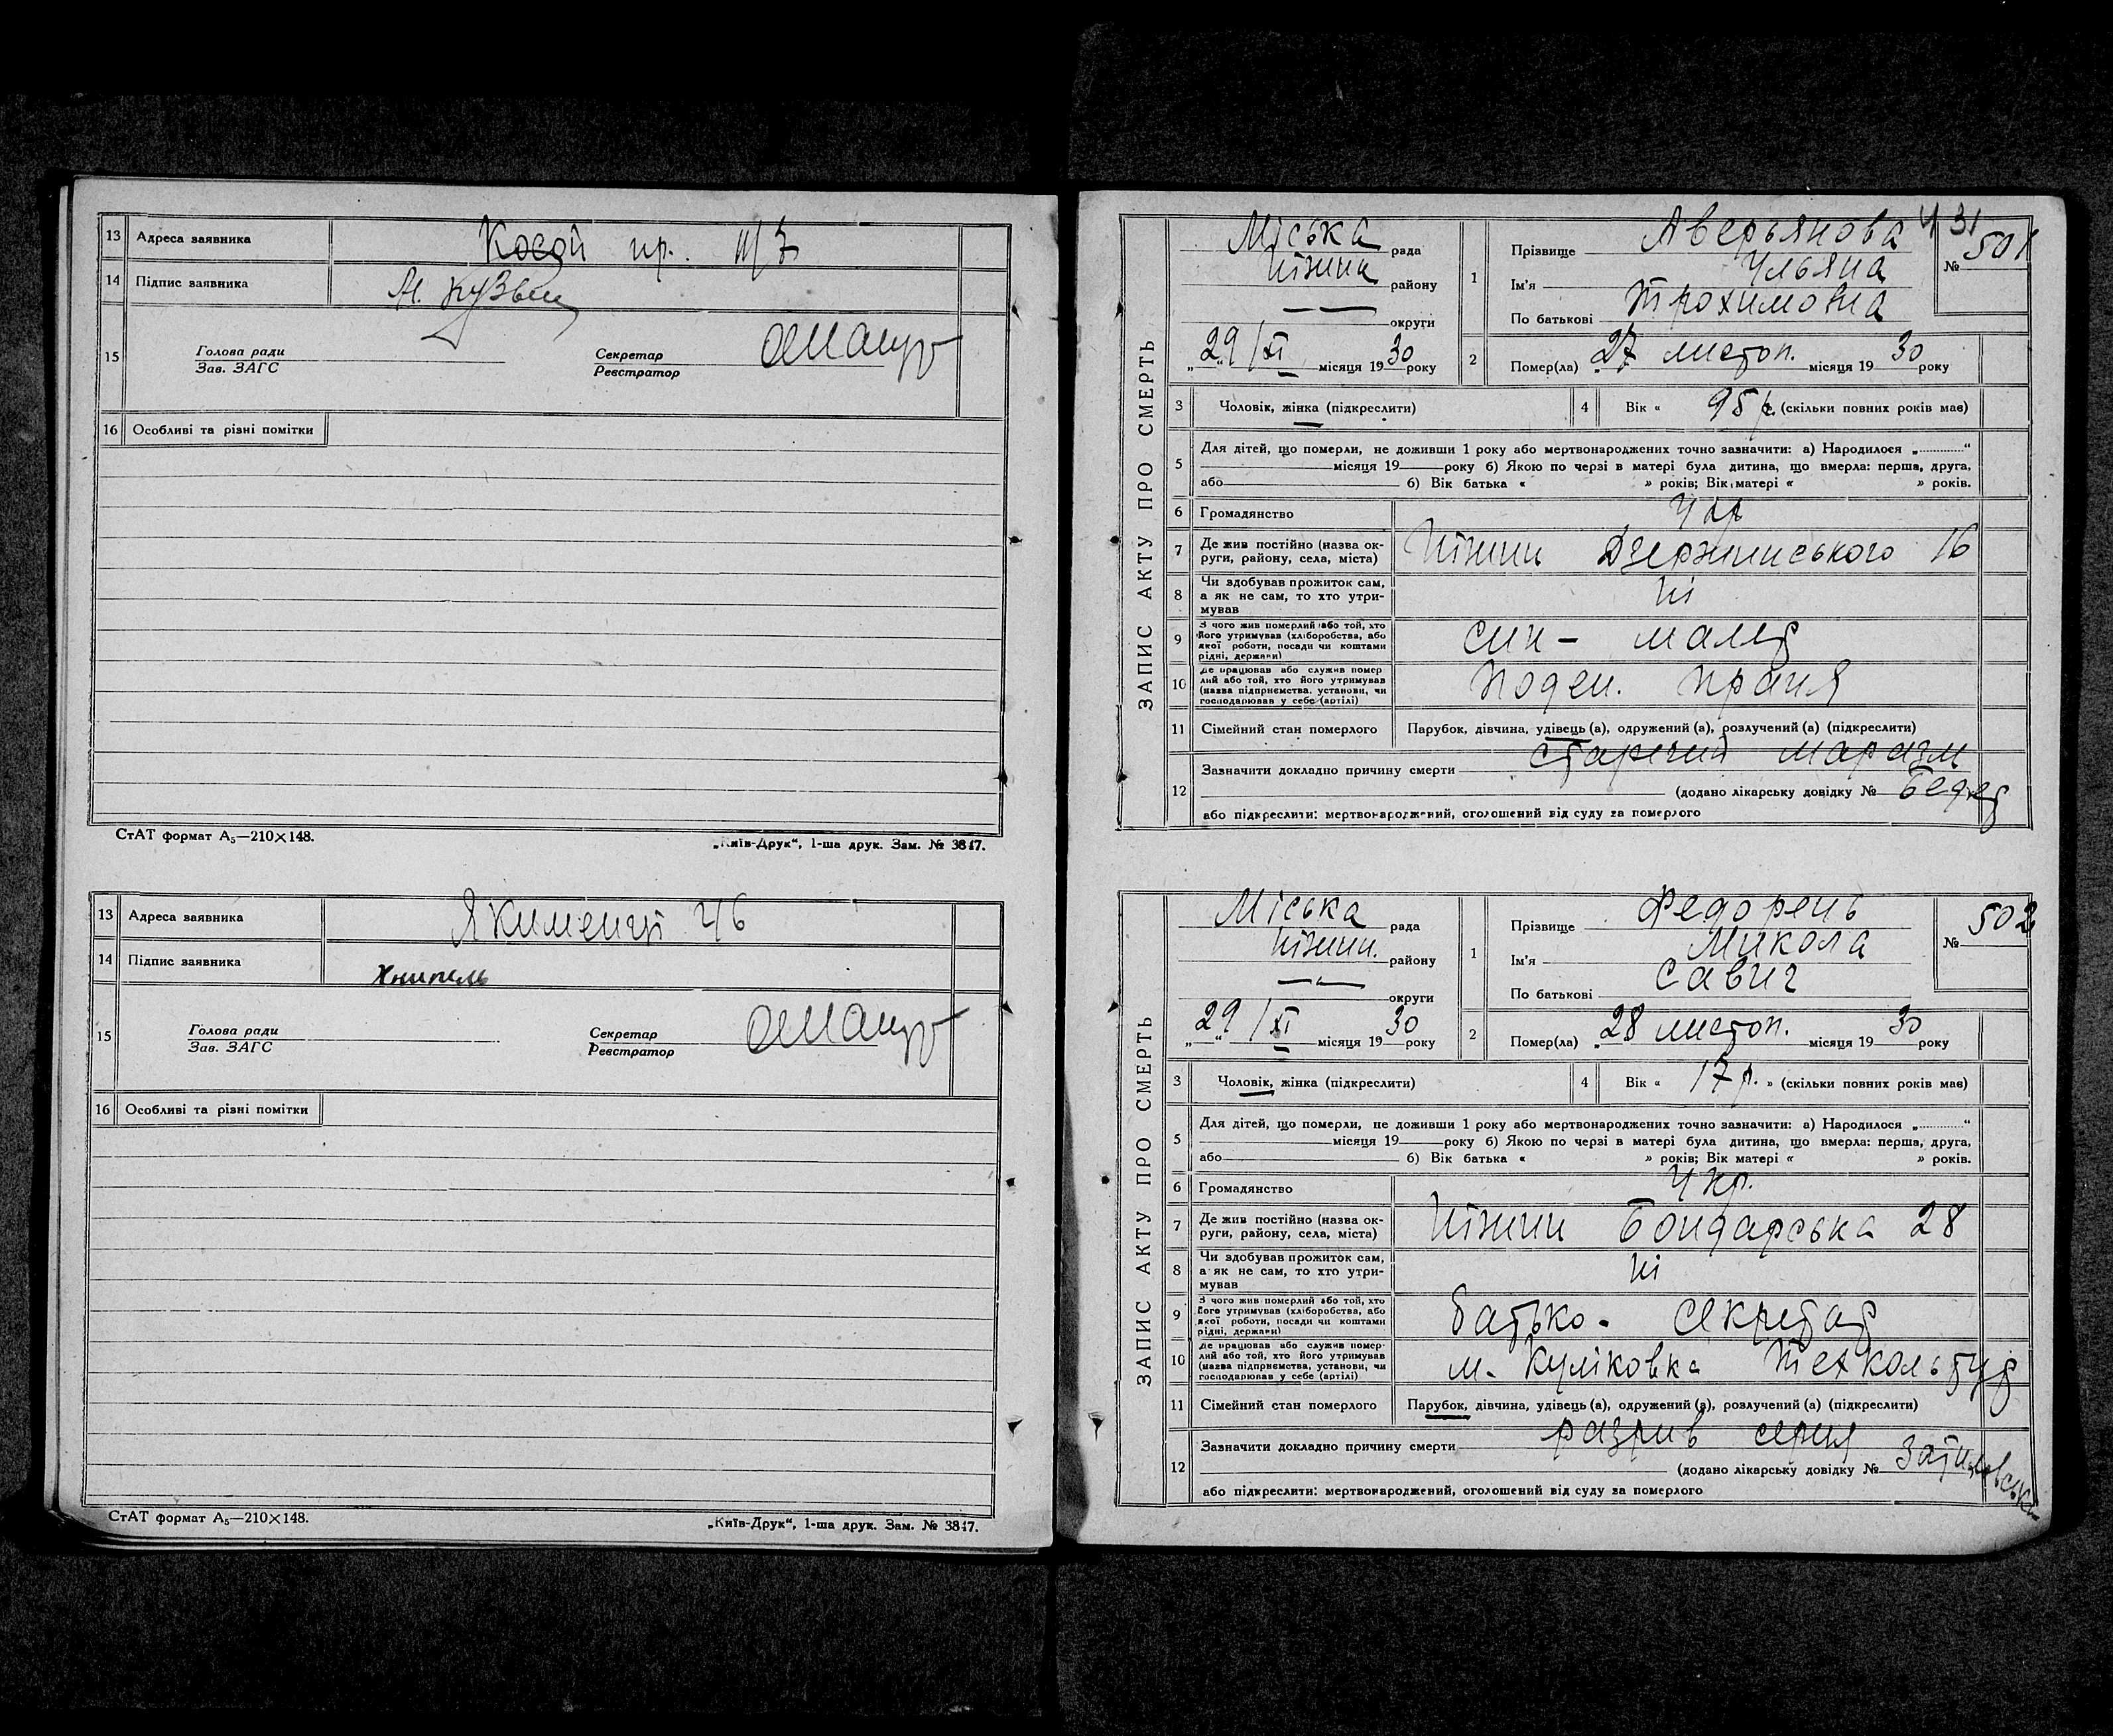 13 Адреса заявника Косой пр. III/7
14 Підпис заявника М. Кузьм
15 Голова ради
Зав. ЗАГС
Секретар
Реєстратор
16 Особливі та різні помітки
СтАТ формат А₅—210×148.
„Київ-Друк“, 1-ша друк. Зам. № 3847.
13 Адреса заявника Якименці 46
14 Підпис заявника Книпель
15 Голова ради
Зав. ЗАГС
Секретар
Реєстратор
16 Особливі та різні помітки
СтАТ формат А₅—210×148.
„Київ-Друк“, 1-ша друк. Зам. № 3847.
431
ЗАПИС АКТУ ПРО СМЕРТЬ
Міська рада
Ніжин району
— округи
„29“ /XI місяця 1930 року
1 Прізвище Аверьянова
Ім'я Ульяна
По батькові Трохимовна
№ 501
2 Помер(ла) 27 листоп. місяця 1930 року
3 Чоловік, жінка (підкреслити)
4 Вік « 95 р. (скільки повних років має)
5 Для дітей, що померли, не доживши 1 року або мертвонароджених точно зазначити: а) Народилося „............“
місяця 19 року б) Якою по черзі в матері була дитина, що вмерла: перша, друга,
або б) Вік батька « » років; Вік матері « » років.
6 Громадянство Укр
7 Де жив постійно (назва ок-
руги, району, села, міста) Ніжин Дзержинського 16
8 Чи здобував прожиток сам,
а як не сам, то хто утри-
мував Ні
9 З чого жив померлий або той, хто
його утримував (хліборобства, або
якої роботи, посади чи коштами
рідні, держави) син - маляр
10 Де працював або служив помер
лий або той, хто його утримував
(назва підприємства, установи, чи
господарював у себе (артілі) Поден. праця
11 Сімейний стан померлого Парубок, дівчина, удівець (а), одружений (а), розлучений (а) (підкреслити)
12 Зазначити докладно причину смерти старечий маразм
(додано лікарську довідку №
або підкреслити: мертвонароджений, оголошений від суду за померлого
ЗАПИС АКТУ ПРО СМЕРТЬ
Міська рада
Ніжин. району
— округи
„29“ /XI місяця 1930 року
1 Прізвище Федорень
Ім'я Микола
По батькові Савич
№ 502
2 Помер(ла) 28 листоп. місяця 1930 року
3 Чоловік, жінка (підкреслити)
4 Вік « 17 р. » (скільки повних років має)
5 Для дітей, що померли, не доживши 1 року або мертвонароджених точно зазначити: а) Народилося „............“
місяця 19 року б) Якою по черзі в матері була дитина, що вмерла: перша, друга,
або б) Вік батька « » років; Вік матері « » років.
6 Громадянство Укр.
7 Де жив постійно (назва ок-
руги, району, села, міста) Ніжин Бондарська 28
8 Чи здобував прожиток сам,
а як не сам, то хто утри-
мував Ні
9 З чого жив померлий або той, хто
його утримував (хліборобства, або
якої роботи, посади чи коштами
рідні, держави) батько - секретар
10 Де працював або служив помер-
лий або той, хто його утримував
(назва підприємства, установи, чи
господарював у себе (артілі) м. Куліковка Техкольтур
11 Сімейний стан померлого Парубок, дівчина, удівець (а), одружений (а), розлучений (а) (підкреслити)
12 Зазначити докладно причину смерти разрив серця
(додано лікарську довідку №
або підкреслити: мертвонароджений, оголошений від суду за померлого